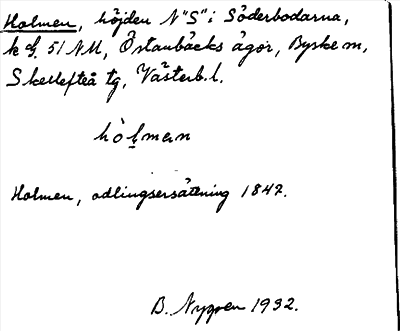 Holmen, höjden N "S" i Söderbodarna,
k bl. 51 NU, Östanbäcks ägor, Byske m,
Skellefteå tg, Västerb. l.
hòl̠man
Holmen, odlingsersättning 1847.
B. Nygren 1932.